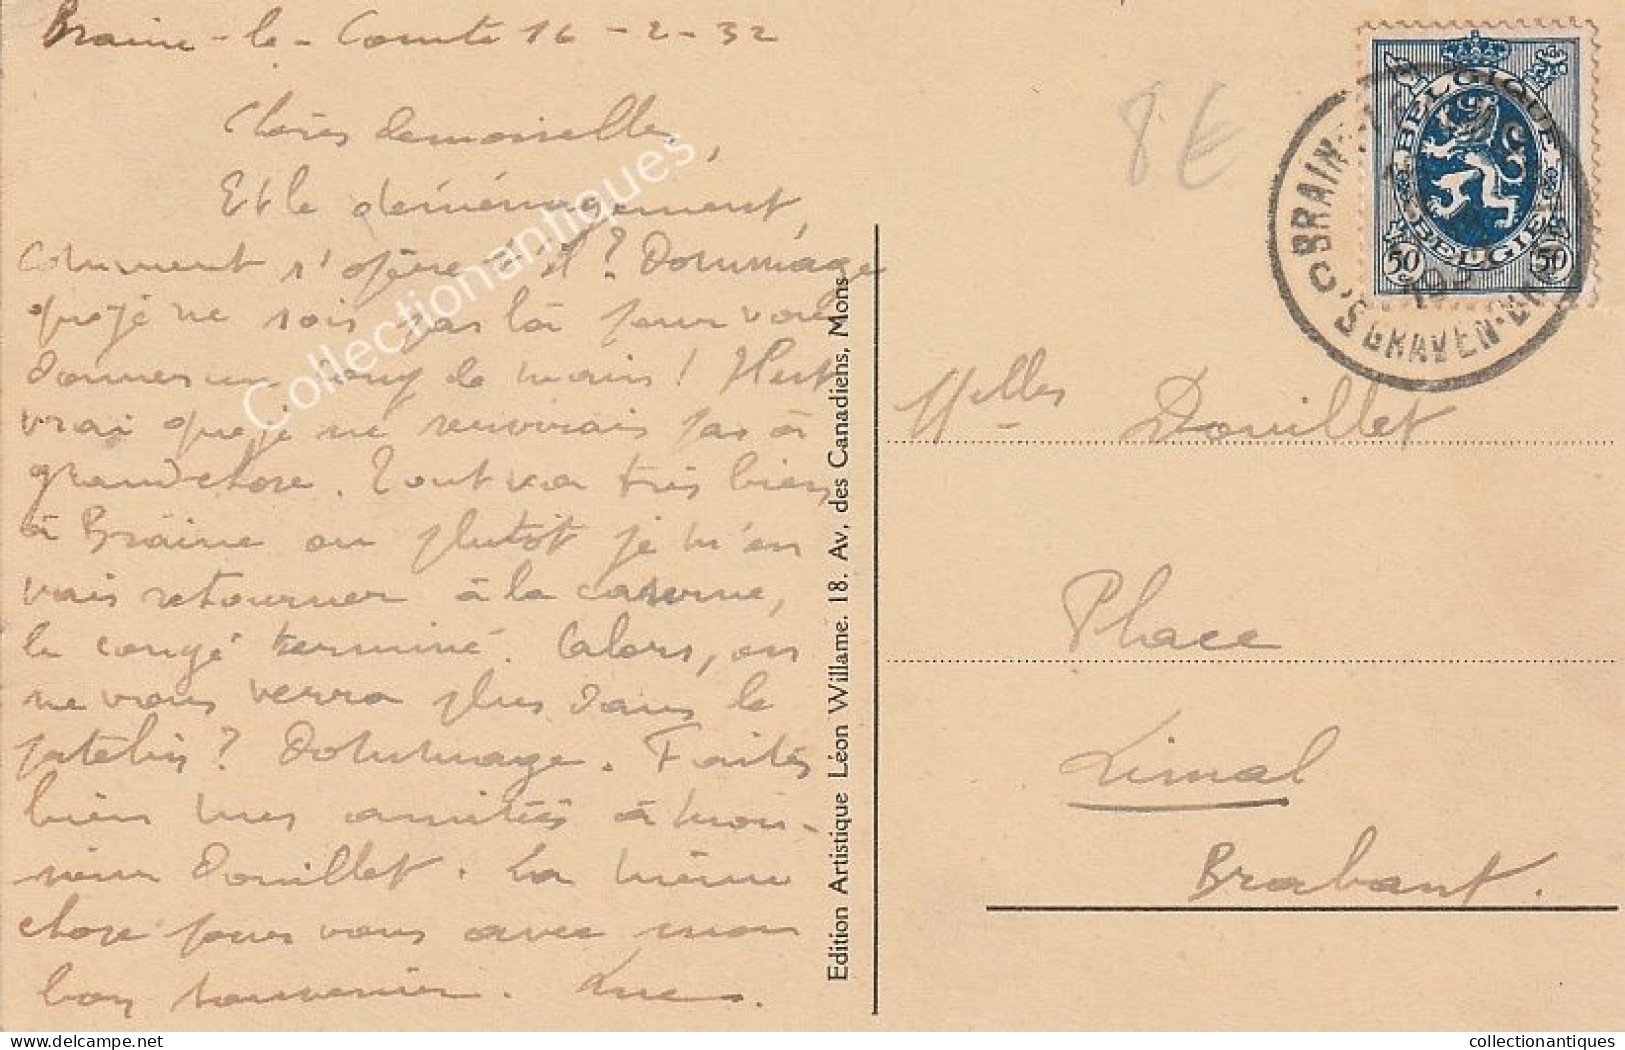 Braine-le-Comte 16-2-32
Chères demoiselles,
Et le déménagement,
comment s'opère t'il? Dommage
que je ne sois pas là pour vous
donner un coup de main! Il est
vrai que je ne servirais pas à
grand chose. Tout va très bien
à Braine ou plutôt je m'en
vais retourner à la caserne,
le congé terminé. Alors, on
ne vous verra plus dans le
patelin? Dommage. Faites
bien mes amitiés à Mon-
sieur Douillet. La même
chose pour vous avec mon
bon souvenir.
Edition Artistique Léon Willame. 18. Av. des Canadiens, Mons
8€
BELGIQUE
BELGIE
50 50
BRAIN
'S GRAVEN-BR
Melles Douillet
Place
Limal
Brabant.
Collectionantiques
delcampe.net
collectionantiques